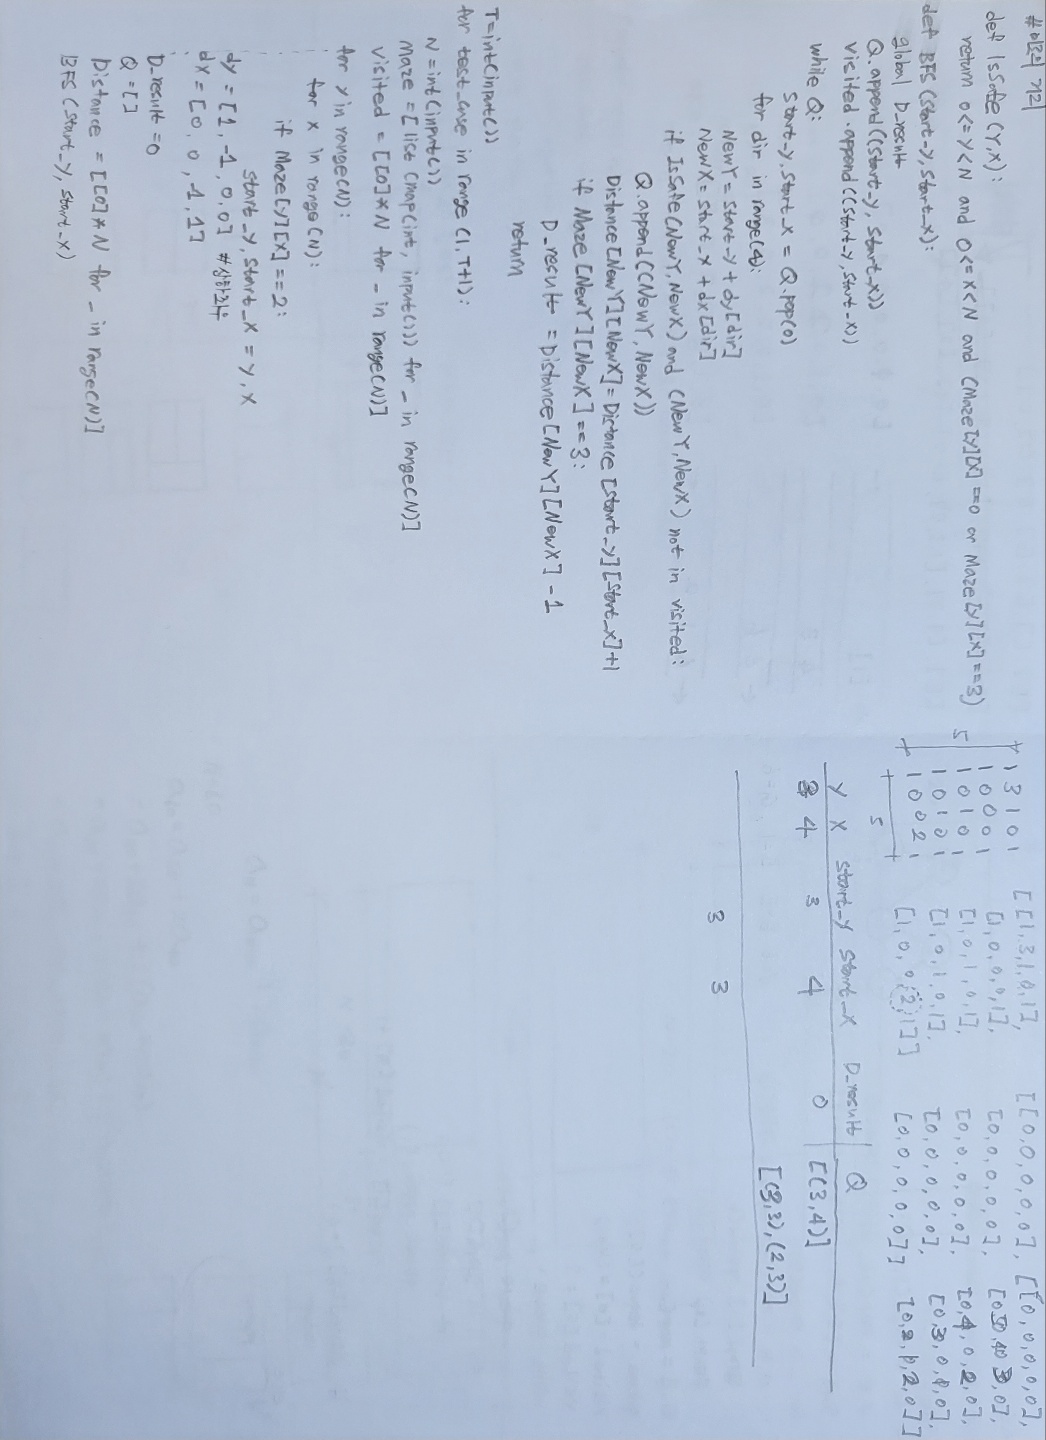 #미로의 거리
def IsSafe(Y,X):
return 0<=Y<N and 0<=X<N and (Maze[Y][X]==0 or Maze[Y][X]==3)
def BFS(Start_y, Start_x):
global D_result
Q.append((Start_y, Start_x))
Visited.append((Start_y, Start_x))
while Q:
Start_y, Start_x = Q.pop(0)
for dir in range(4):
NewY = Start_y + dy[dir]
NewX = Start_x + dx[dir]
if IsSafe(NewY, NewX) and (NewY, NewX) not in visited:
Q.append((NewY, NewX))
Distance[NewY][NewX] = Distance[Start_y][Start_x]+1
if Maze[NewY][NewX]==3:
D_result = Distance[NewY][NewX] -1
return
T=int(input())
for test_case in range(1,T+1):
N=int(input())
Maze = [list(map(int, input())) for _ in range(N)]
Visited = [[0]*N for _ in range(N)]
for y in range(N):
for x in range(N):
if Maze[y][x]==2:
Start_y, Start_x = y, x
dy = [1, -1, 0, 0] #상하좌우
dx = [0, 0, -1, 1]
D_result = 0
Q = []
Distance = [[0]*N for _ in range(N)]
BFS(Start_y, Start_x)
1 3 1 0 1
1 0 0 0 1
1 0 1 0 1
1 0 1 0 1
1 0 0 2 1
5
5
[[1,3,1,0,1],
[1,0,0,0,1],
[1,0,1,0,1],
[1,0,1,0,1],
[1,0,0,2,1]]
[[0,0,0,0,0],
[0,0,0,0,0],
[0,0,0,0,0],
[0,0,0,0,0],
[0,0,0,0,0]]
[[0,0,0,0,0],
[0,4,0,2,0],
Y X Start_y Start_x D_result Q
3 4 3 4 0 [(3,4)]
[(3,3),(2,3)]
3 3